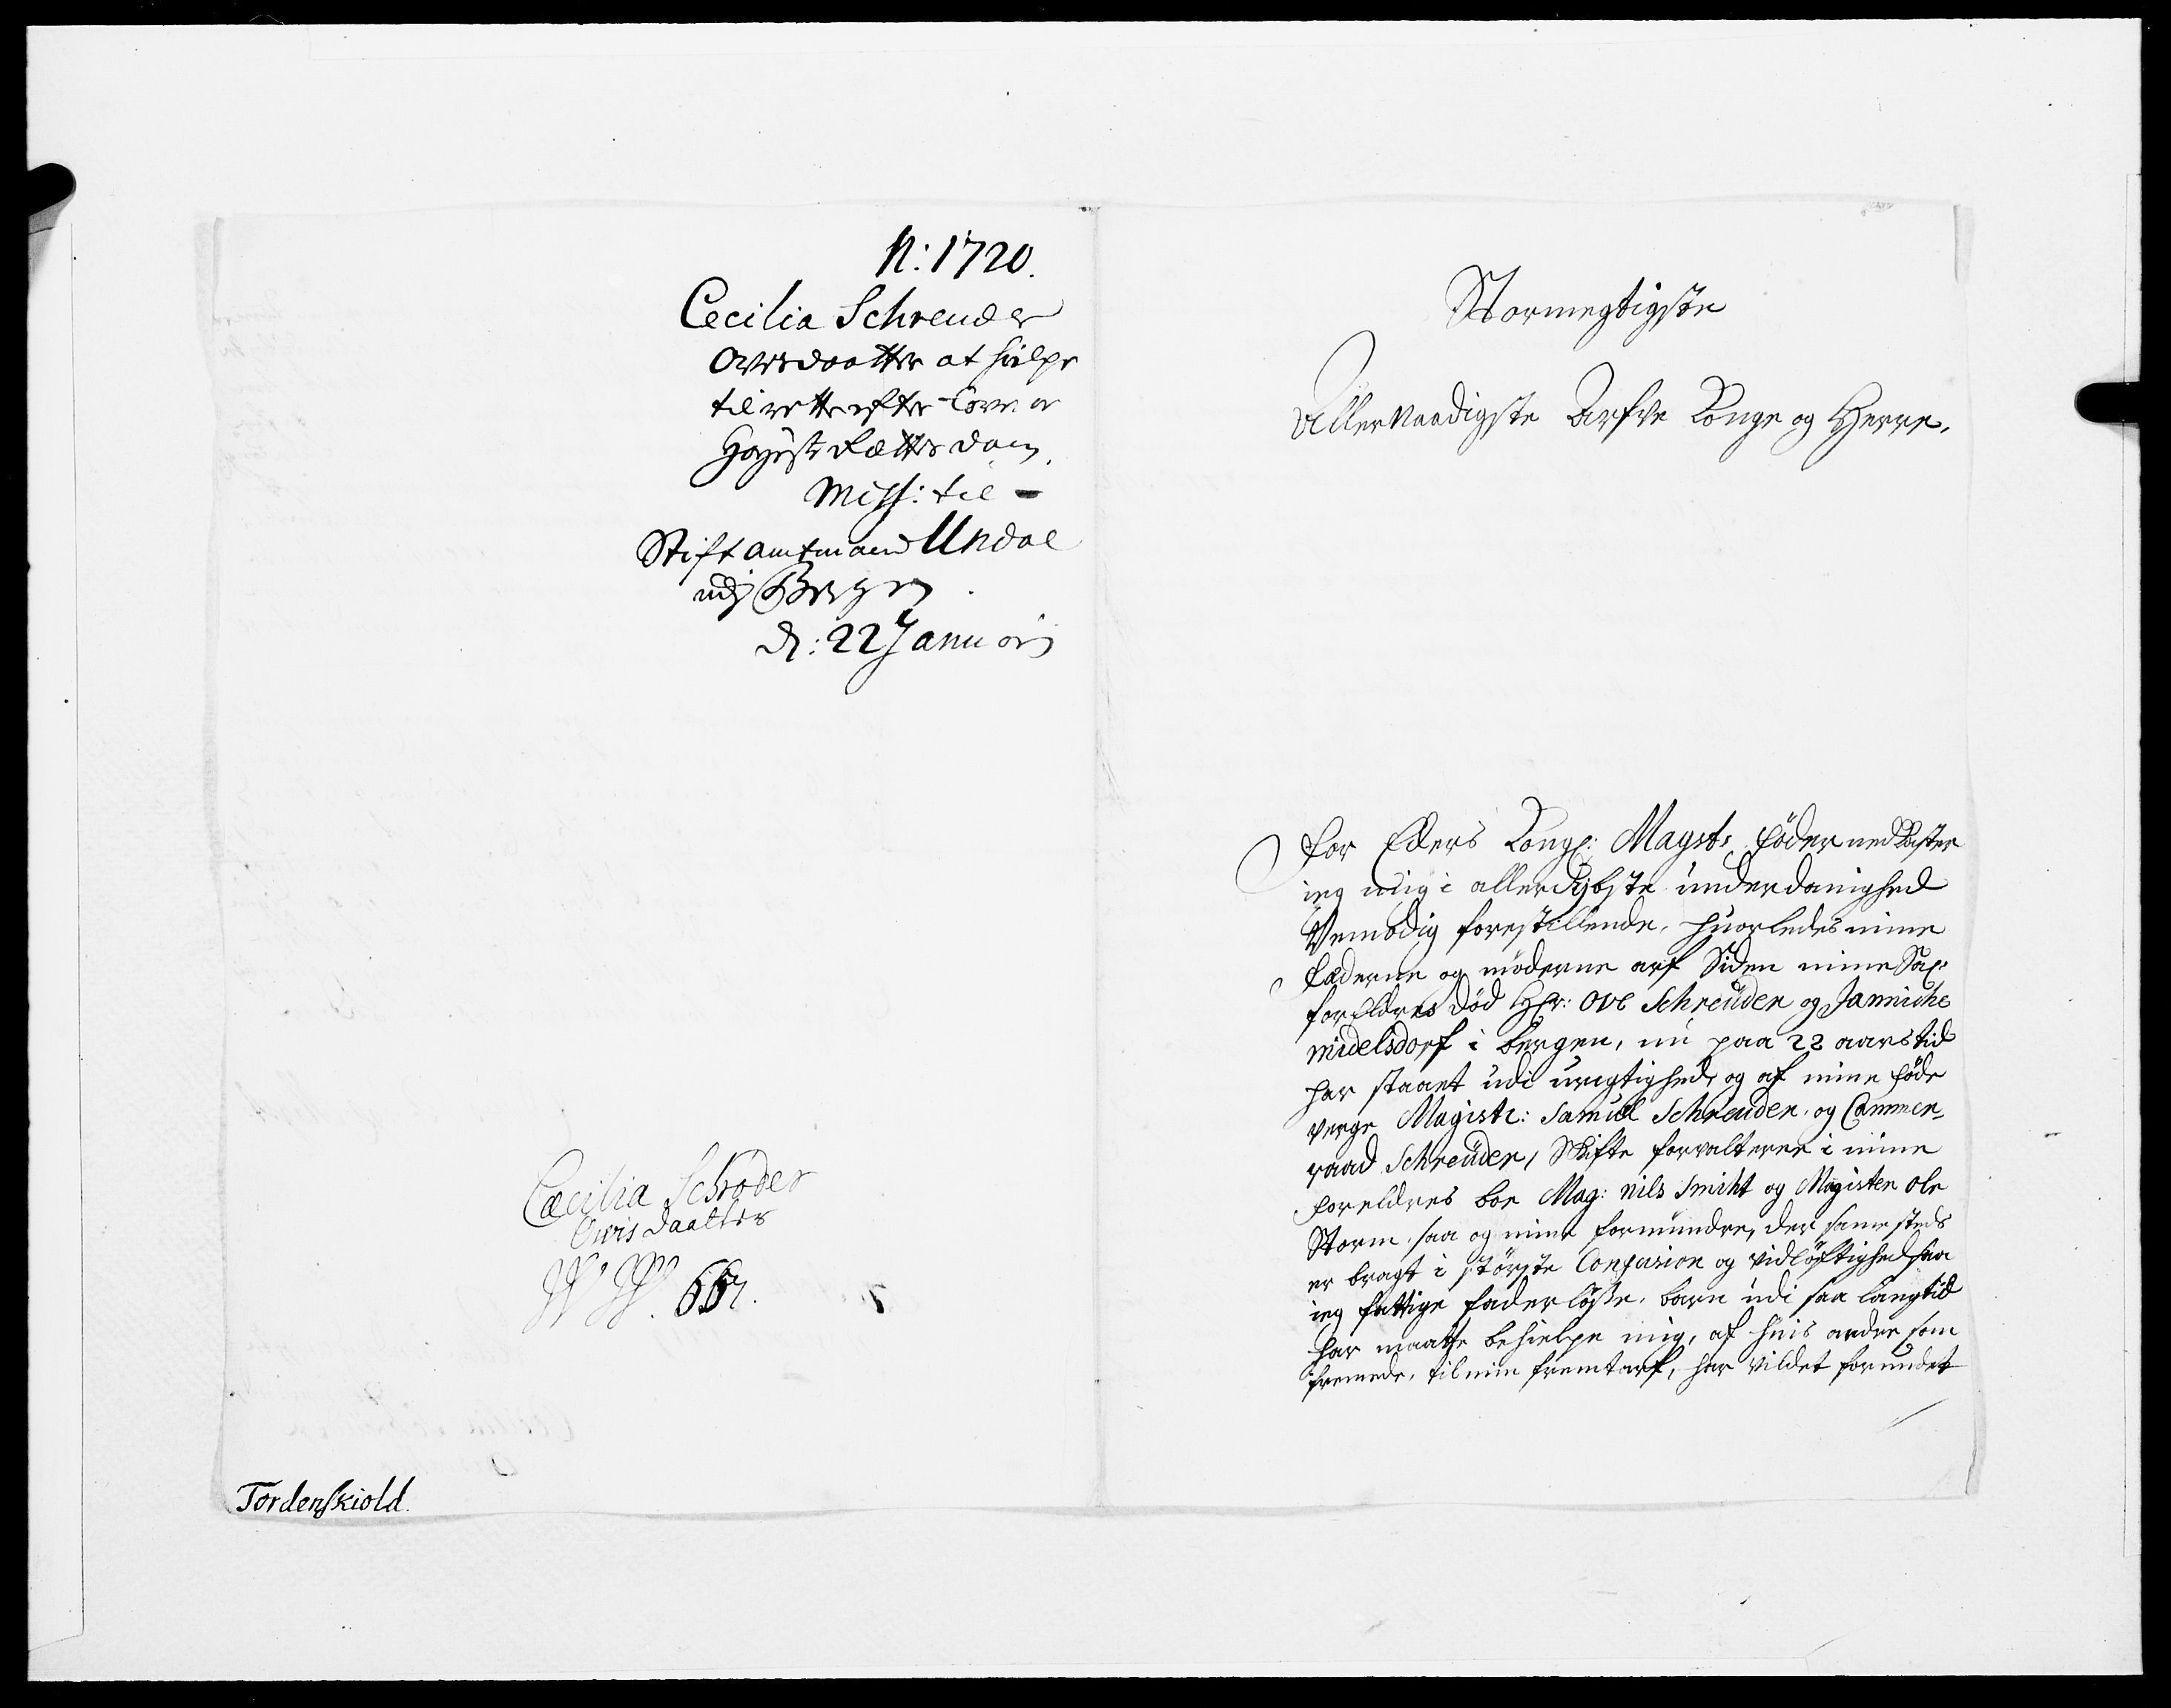 N: 1720.
Cecilia Schreuder
Ovesdaatter at hielpe
til rette efter Loven
Høyeste Rætts dom.
Miss: til
Stiftamtmand Undal
udj Bergen.
d: 22 Januarij
Cæcilia Schrøder
Owis daatter
Tordenskiold.
Stormegtigste
Allernaadigste Arfve Konge og Herre,
For Eders Kongl: Mayets føder nedkaster
ieg mig i allerdybste underdanighed
Vemodig forestillende, huorledes mine
fæderne og møderne arf Siden mine Sal:
forældres død Hr: Ove Schreuder og Jannicke
midelsdorf i bergen, nu paa 22 aarstid
har staaet udi urigtighed, og af mine føde
verge Magistr: Samuel Schreuder, og Cammer-
raad Schreuder, Skifte forvalterne i mine
foreldres boe Mag: Nils Smiht og Magister Ole
Storm, saa og mine formundre, der sammesteds
er bragt i største Confusion og vidløftighed saa
ieg fattige faderløsse barn udi saa lang tid
har maatte behielpe mig, af huis andre som
fremede, til min fremtarf, har vildet forundet